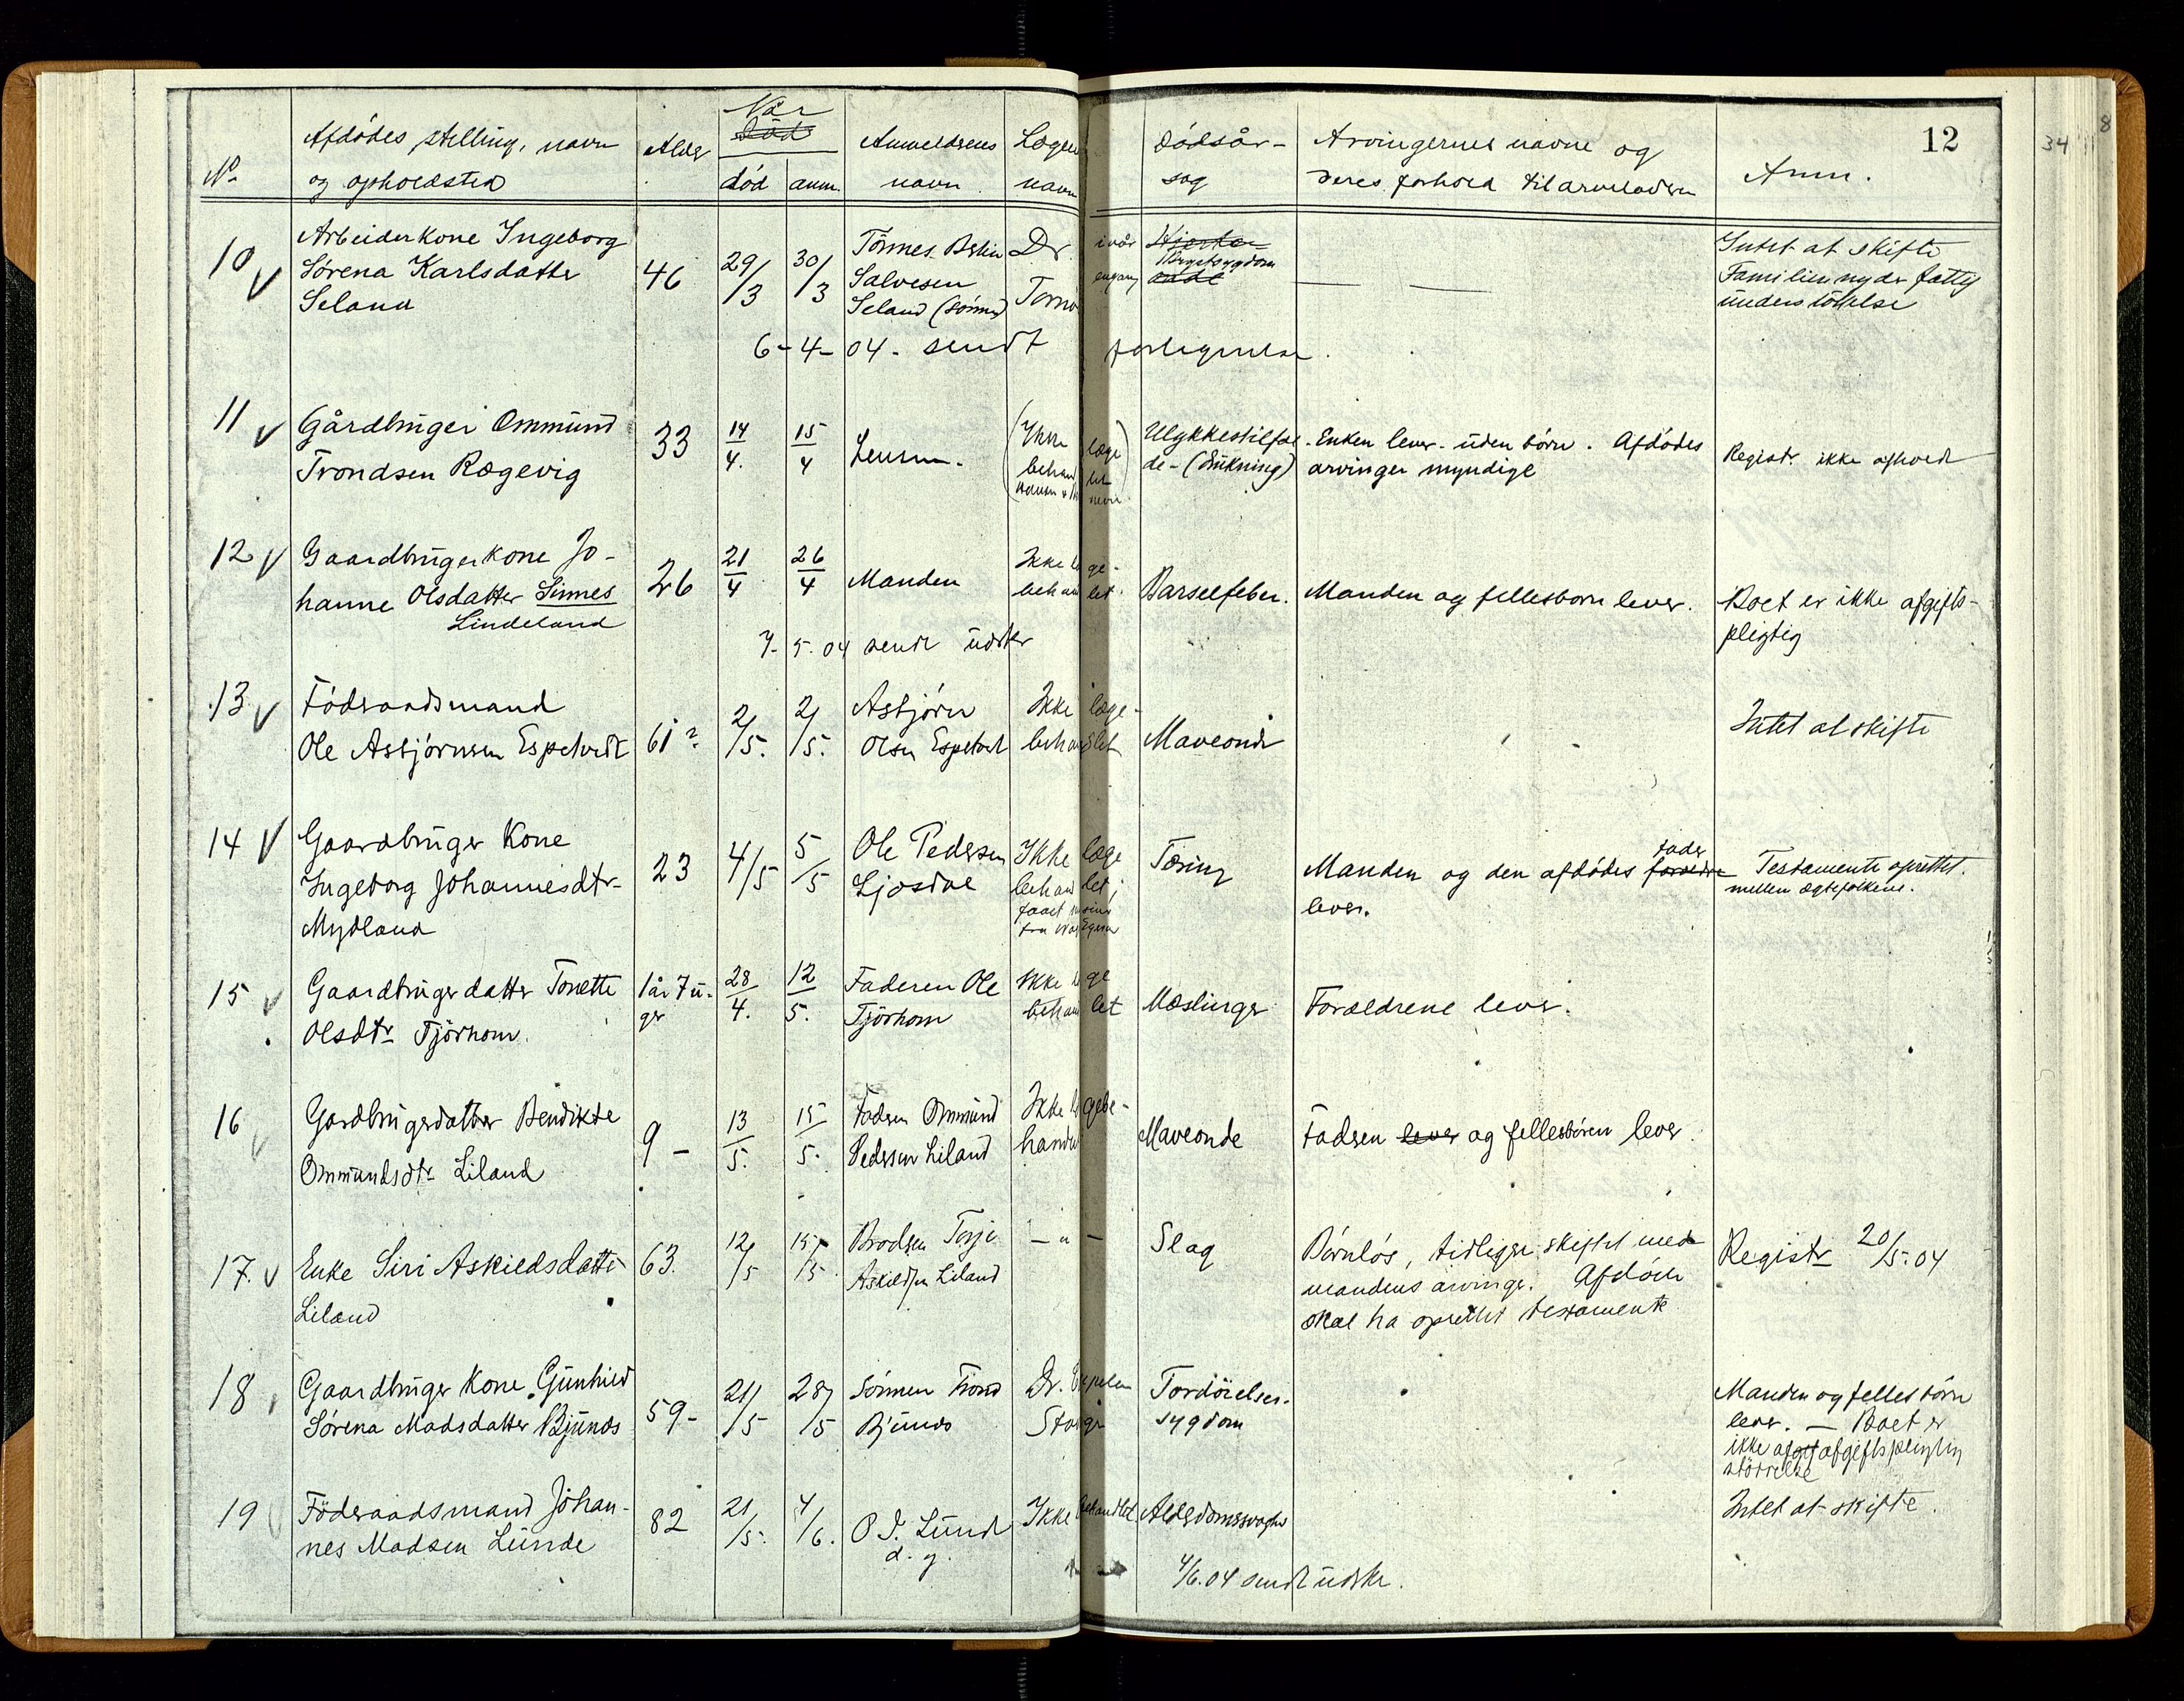 12
34
8
Når
Afdödes stilling, navn
og opholdsted
No
Alder
död
död
anm.
Anmelderens
navn
Læge
navn
Dödsår-
sag
Arvingernes navne og
deres forhold til arveladeren
Anm.
10
Arbeiderkone Ingeborg
Sörena Karlsdatter
Seland
46
29/3
30/3
Tönnes
Salvesen
Seland (sönn)
Dr.
Hjerte
Brystsygdom
onde
Intet at skifte
Familien nyder fattig
understöttelse
6-4-04. sendt
11
Gårdbruger Ommund
Trondsen Rægevig
33
14/4.
15/4
Lensm.
(Ikke læge)
Ulykkestilfæl-
de - (Drukning)
Enken lever - uden börn. Afdödes
arvinger myndige
Registr. ikke afholdt
12
Gaardbrugerkone Jo-
hanne Olsdatter Sinnes
Lindeland
26
21/4
26/4
Manden
Ikke læge-
behandlet.
Barselfeber.
Manden og fellesbörn lever.
Boet er ikke afgifts-
pligtig
7-5.04 sendt udskr
13
Föderaadsmand
Ole Asbjörnsen Espetvedt
61?
2/5.
2/5.
Asbjörn
Olsen Espetvedt
Ikke læge-
behandlet
Maveonde
Intet at skifte
14
Gaardbruger Kone
Ingeborg Johannesdtr
Mydland
23
4/5
5/5
Ole Pedersen
Ljosdal
Ikke læge
behandlet;
Tæring
Manden og den afdödes forældre fader
lever.
Testamente oprettet.
mellem ægtefolkene.
15
Gaardbrugerdatter Tonette
Olsdtr Tjörhom.
1 år 7 u-
ger
28/4.
12/5.
Faderen Ole
Tjörhom
Ikke læge
behandlet
Mæslinger
Forældrene lever.
16
Gardbrugerdatter Bendikte
Ommundsdtr Liland
9 -
13/5.
15/5.
Faderen Ommund
Pedersen Liland
Ikke lægebe-
handlet
Maveonde
Faderen lever og fellesbören lever.
17.
Enke Siri Askieldsdatter
Liland
63.
12/5
15/5
Broderen Terje
Askildsen Liland
- " -
Slag
Börnlös, tidligere skiftet med
mandens arvinger. Afdöde
skal ha oprettet testamente
Registr 20/5.04
18
Gaardbruger Kone Gunhild
Sörena Madsdatter Bjunes
59-
21/5
28/5
Sönnen Trond
Bjunes
Dr.
Fordöielses-
sygdom
Manden og felles börn
lever. - Boet er
ikke afgif afgiftspligtig
störrelse
19
Föderaadsmand Johan-
nes Madsen Lunde
82
21/5.
4/6.
P. J. Lunde
d. y.
Ikke behandlet
Alderdomssvaghed
Intet at skifte.
4/6.04 sendt udskr.